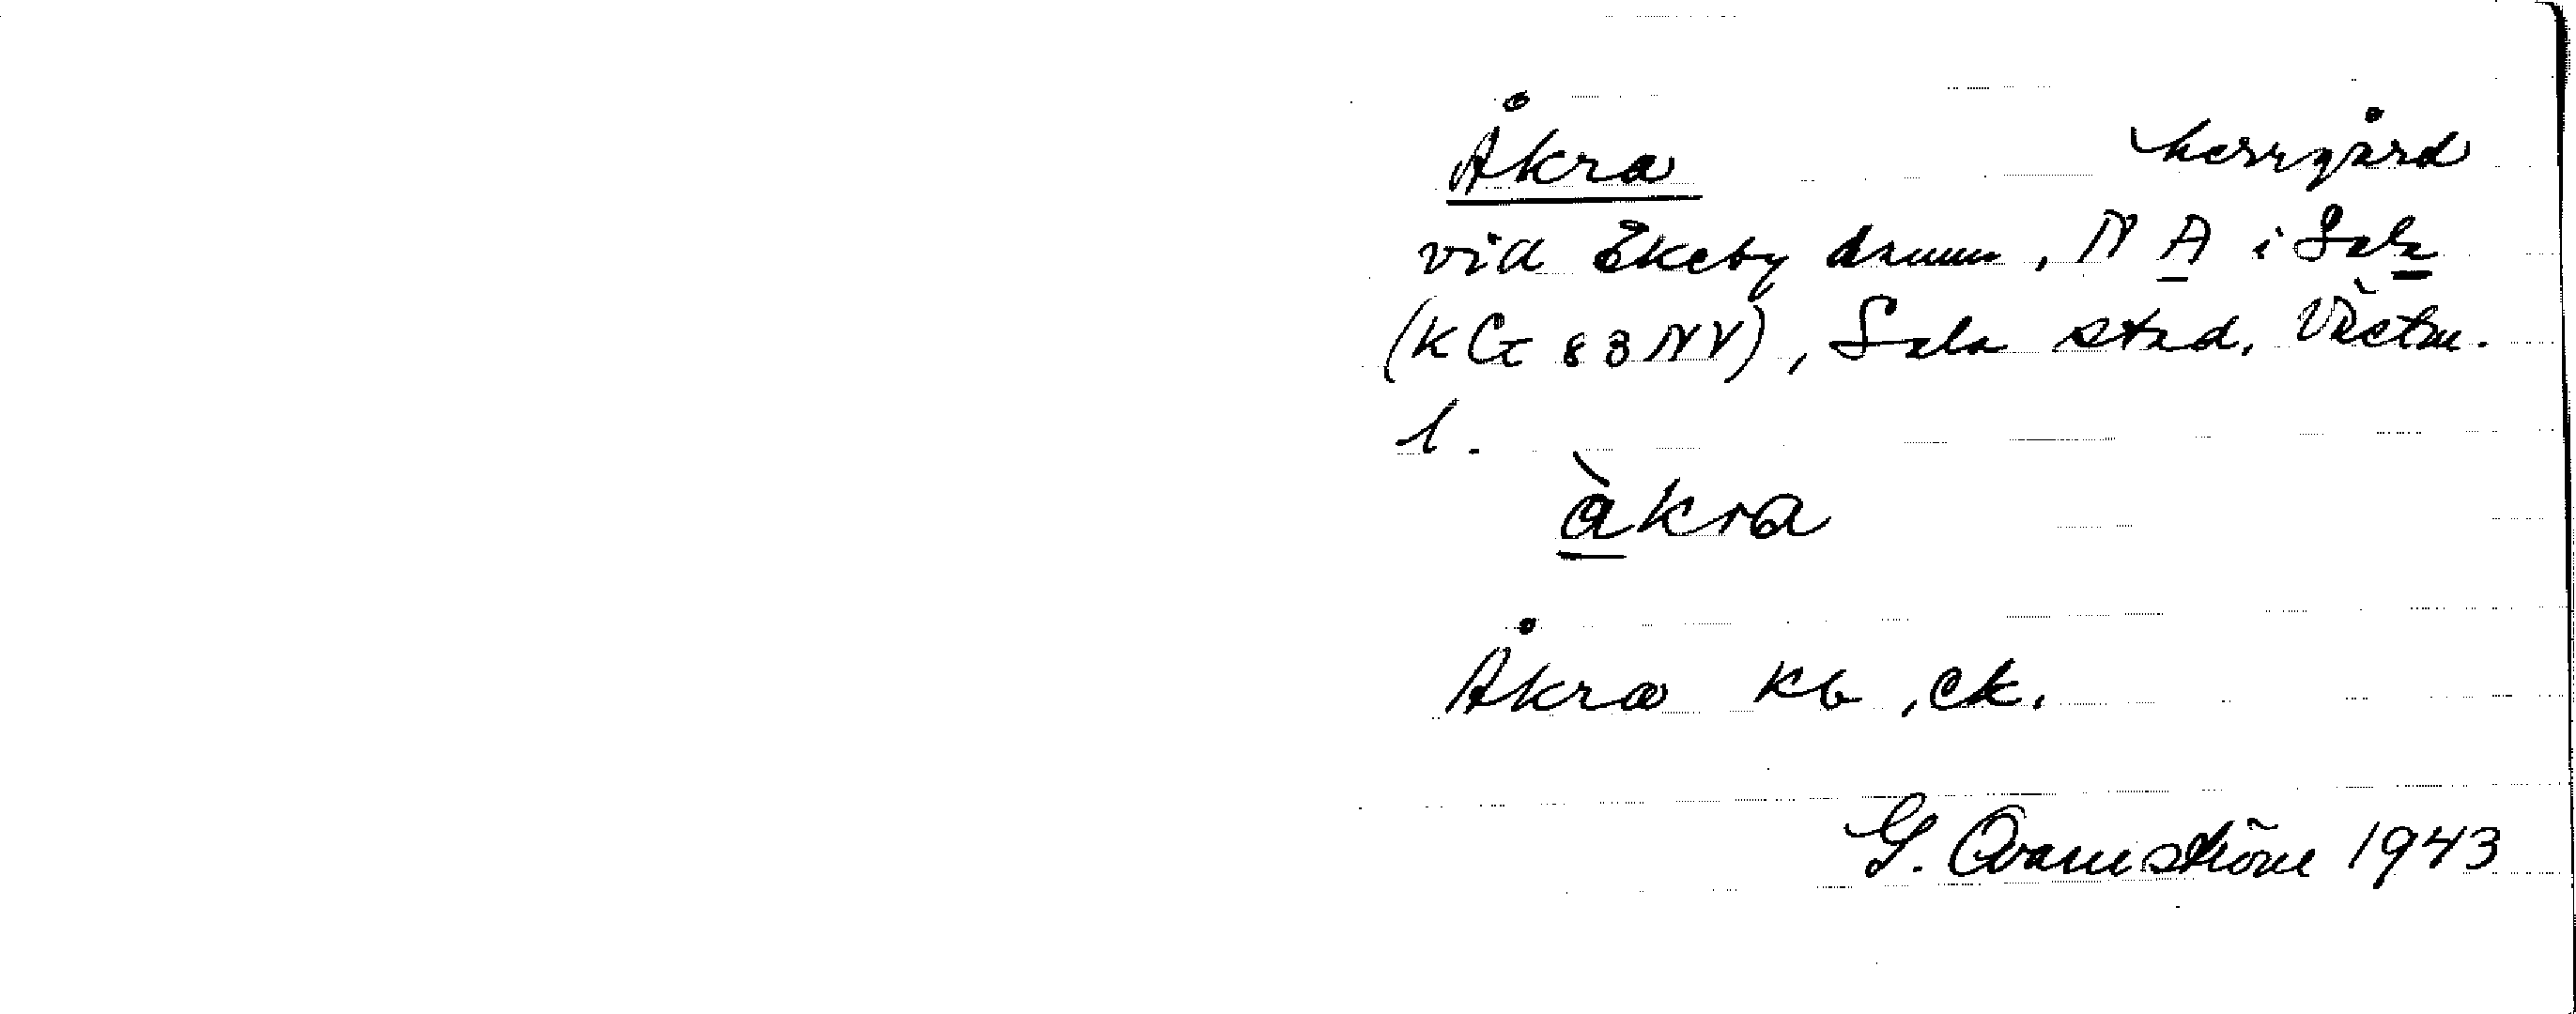 Åkra herrgård
vid Ekeby damm, N A i Sala
(KG 83 NV), Sala stad, Västm.
l.
àkra
Åkra kb, ek.
G. Qvarnström 1943